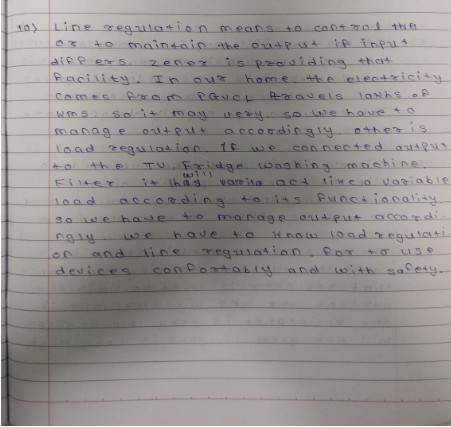 10) Line regulation means to control the
or to maintain the output if input
differs. zener is providing that
facility. In our home the electricity
comes from travels lakhs of
kms. so it may very so we have to
manage output accordingly. other is
load regulation. If we connected output
to the TV, Fridge, washing machine,
Filter it has will act like a variable
load according to its functionality
so we have to manage output accordi-
ngly we have to know load regulati
on and line regulation. for to use
devices comfortably and with safety.